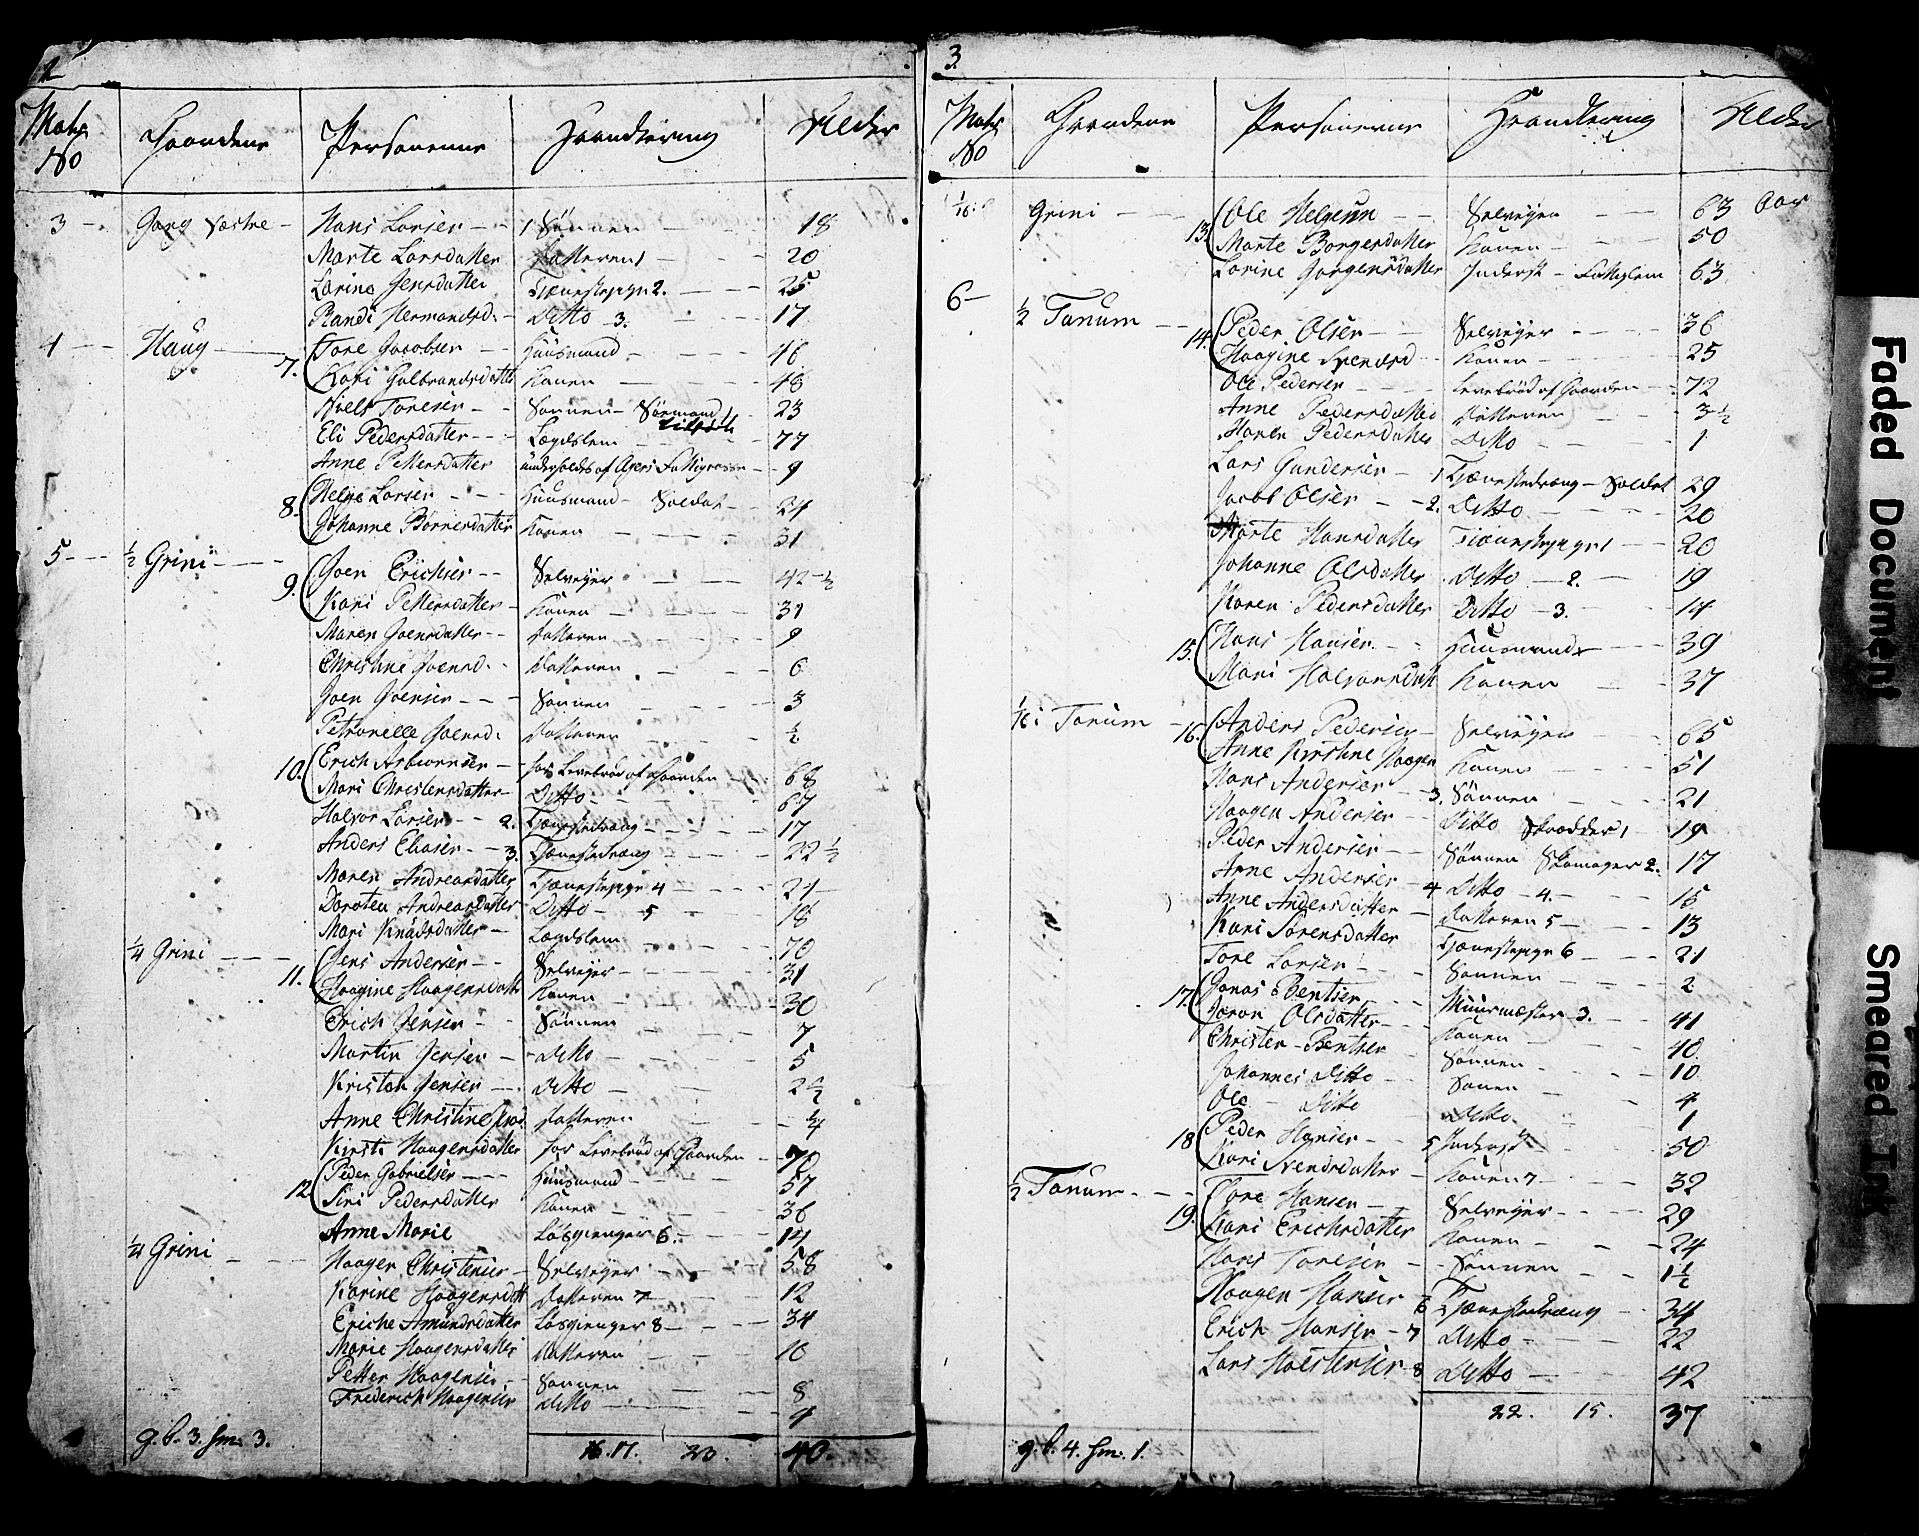 2
Matr No Gaardene Personerne Haandtering Alder
3 - Gary Væstre - Hans Larsen - - 1 Sönnen - 18
Marte Larsdatter Datteren 1 - 20
Larine Jensdatter Tjenestepige 2. - - 25
Randi Hermandsd. - Ditto 3. - 17
4 - Haug - 7. Tore Jacobsen - - Huusmand - - - 46
Kari Gulbrandsdatter Konen - - - 48
Niels Toresen - - Sönnen - Sömand 1 - 23
Eli Pedersdatter - - Lægdslem - - - 77
Anne Pettersdatter underholdes af Agers Fattigcasse - - 9
8. Helge Larsen - - Huusmand - Soldat - 24
Johanne Börresdatter Konen - - - 31
5 - 1/2 Grini - - 9. Joen Erichsen - - Selveyer - - 42 1/2
Kari Pettersdatter - Konen - - 31
Maren Joensdatter - - Datteren - - 9
Christine Joensd. - Datteren - - 6
Joen Joensen - - Sönnen - - 3
Petronelle Joensd. Datteren - - 1/2
10. Erich Asbiörnsen - har Levebröd af Gaarden 68
Mari Christensdatter - Ditto - - 67
Halvor Larsen - - 2. Tjenestedreng - - 17
Anders Eliasen - - 3. Tjenestedreng - - 22 1/2
Maren Andreasdatter Tjenestepige 4 - - 24
Dorotea Andreasdatter Ditto - 5 - - 18
Mari Knudsdatter - Lægdslem - - 70
1/4 Grini - - 11. Jens Andersen - - Selveyer - - 31
Haagine Haagensdatter Konen - - 30
Erich Jensen - - Sönnen - - 7
Martin Jensen - - Ditto - - 5
Kristen Jensen - - Ditto - - 2 1/2
Anne Christine Datteren - - 1/4
Kirsti Haagensdatter har Levebröd af Gaarden - 70
12. Peder Gabrielsen - - Huusmand - - 57
Siri Pedersdatter Konen - - 36
Anne Marie Lösgienger 6. - - 14
1/4 Grini - - Haagen Christensen - Selveyer - - 58
Karine Haagensdatt Datteren 7 - - 12
Eriche Amundsdatter Lösgienger 8 - - 34
Marie Haagensdatter Datteren - - 10
Petter Haagensen - Sönnen - - 8
Friderich Haagensen Ditto - - 4
g.b. 3. hm. 3. 17. 23. 40.
3.
Matr No Gaardene Personerne Haandtering Alder
1/16 Grini - - 13. Ole Helgesen - - Selveyer - - 63 Aar
Marte Borgersdatter Konen - - 50
Larine Jörgensdatter Inderst - Fattiglem 63
6 - 1/2 Tanum - - 14. Peder Olsen - - Selveyer - - 36
Haagine Svendsd - Konen - - 25
Ole Pedersen - - Levebröd af Gaarden - - 72
Anne Pedersdatter Datteren - - 3 1/2
Maren Pedersdatter Ditto - - 1
Lars Gundersen - 1 Tjenestedreng - Soldat 29
Jacob Olsen - - 2. Ditto - - 20
Marte Hansdatter Tienestepige 1 - 20
Johanne Olsdatter Ditto - 2. - 19
Karen Pedersdatter Ditto - 3. - 14
15. Hans Hansen - - Huusmand - - 39
Mari Halvorsdatt Konen - - 37
1/16 Tanum - 16. Anders Pedersen - Selveyer - - 65
Anne Kirstine Haagen Konen - - 51
Hans Andersen - - 3. Sönnen - - 21
Haagen Andersen - - Ditto Skrædder 1 - 19
Peder Andersen - - Sönnen Skomager 2. 17
Arne Andersen - 4 Ditto - 4. - 15
Anne Andersdatter - Datteren 5 - - 13
Kari Sörensdatter Tjenestepige 6 - 21
Tore Larsen - - Sönnen - - 2
17. Jonas Bentsen - - Muurmæster 3. - 41
Joran Olsdatter - - Konen - - 40
Christen Bentsen Sönnen - - 10
Johannes Ditto - Sönen - - 4
Ole - Ditto Ditto - - 1
18 Peder Hansen - - 5 Inderst - - 50
Kari Svendsdatter - Konen 7 - - 32
1/2 Tanum - - 19. Tore Hansen - - Selveyer - - 29
Kari Erichsdatter Konen - - 24
Hans Toresen - - Sönnen - - 1 1/2
Haagen Hansen 6 Tjenestedreng - - 34
Erich Hansen - 7 Ditto - - 22
Lars 8 Ditto - - 42
22. 15. 37
g.b. 4. hm. 1.
Faded Document
Smeared Ink